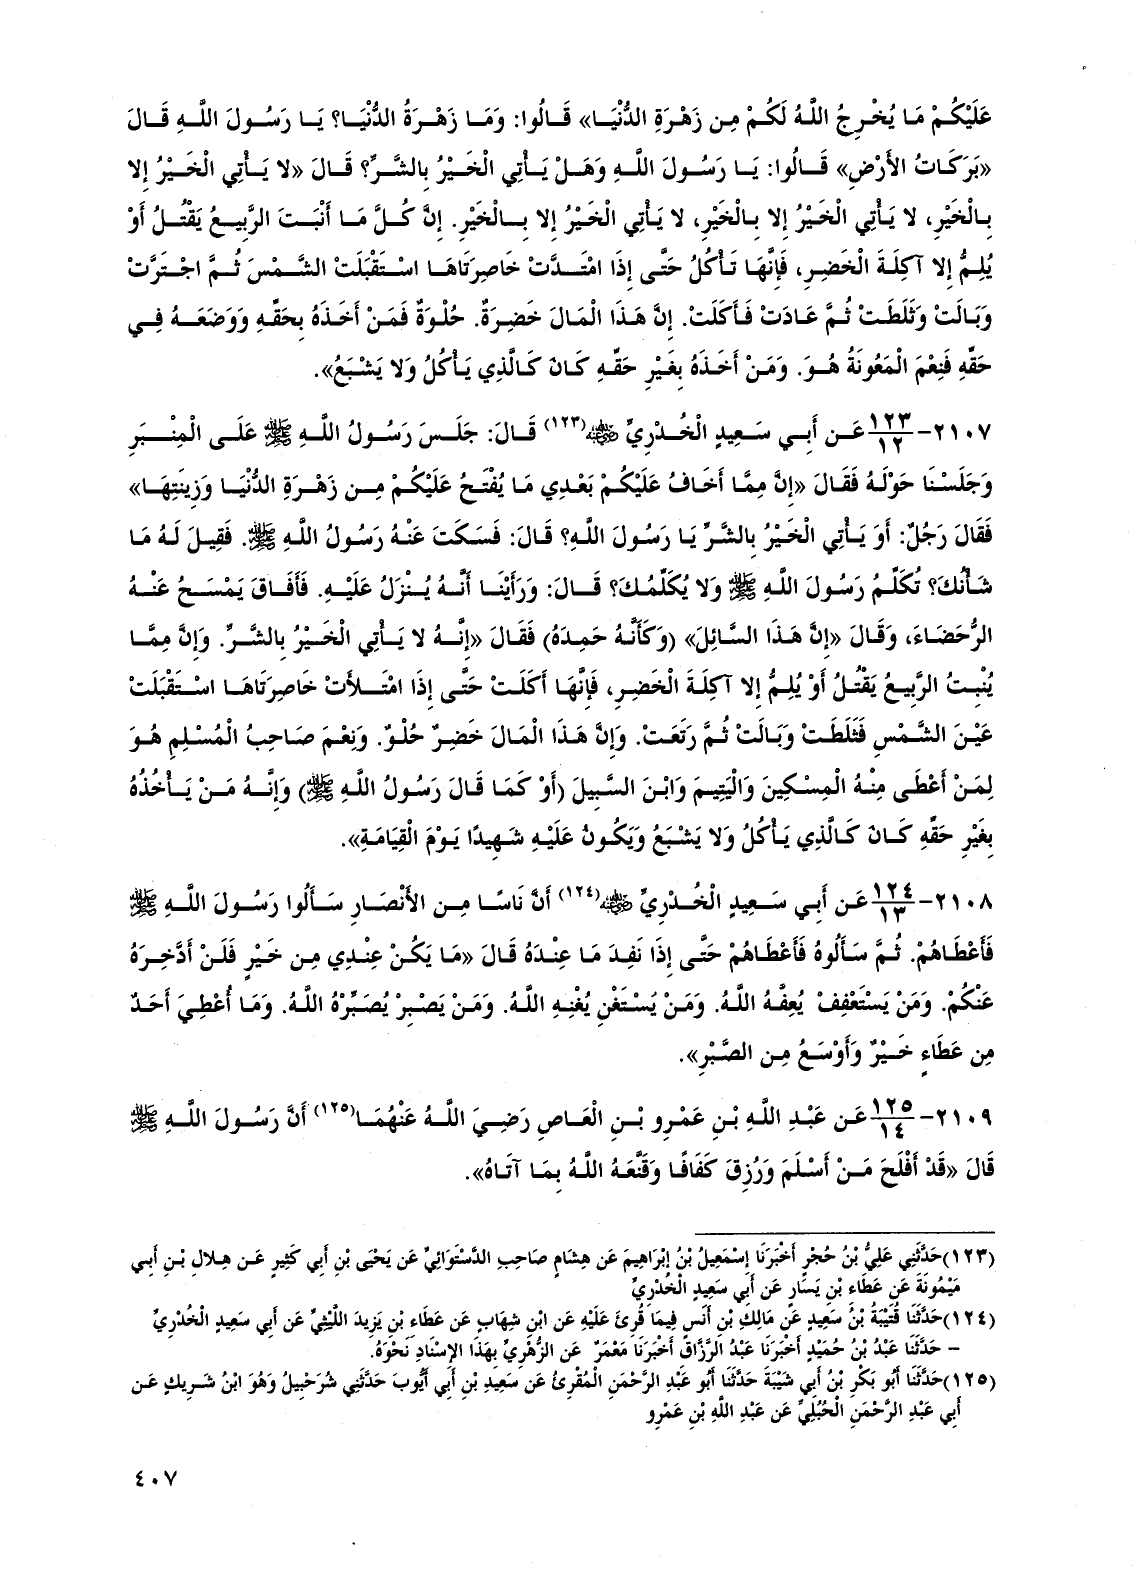 عَلَيْكُمْ مَا يُخْرِجُ اللَّهُ لَكُمْ مِن زَهْرَةِ الدُّنْيَا» قَالُوا: وَمَا زَهْرَةُ الدُّنْيَا؟ يَا رَسُولَ اللَّهِ قَالَ
«بَرَكَاتُ الأَرْضِ» قَالُوا: يَا رَسُولَ اللَّهِ وَهَلْ يَأْتِي الْخَيْرُ بِالشَّرِّ؟ قَالَ «لا يَأْتِي الْخَيْرُ إِلا
بِالْخَيْرِ، لا يَأْتِي الْخَيْرُ إِلا بِالْخَيْرِ، لا يَأْتِي الْخَيْرُ إِلا بِالْخَيْرِ. إِنَّ كُلَّ مَا أَنْبَتَ الرَّبِيعُ يَقْتُلُ أَوْ
يُلِمُّ إِلا آكِلَةَ الْخَضِرِ، فَإِنَّهَا تَأْكُلُ حَتَّى إِذَا امْتَدَّتْ خَاصِرَتَاهَا اسْتَقْبَلَتْ الشَّمْسَ ثُمَّ اجْتَرَّتْ
وَبَالَتْ وَثَلَطَتْ ثُمَّ عَادَتْ فَأَكَلَتْ. إِنَّ هَذَا الْمَالَ خَضِرَةٌ. حُلْوَةٌ فَمَنْ أَخَذَهُ بِحَقِّهِ وَوَضَعَهُ فِي
حَقِّهِ فَنِعْمَ الْمَعُونَةُ هُوَ. وَمَنْ أَخَذَهُ بِغَيْرِ حَقِّهِ كَانَ كَالَّذِي يَأْكُلُ وَلا يَشْبَعُ».
٢١٠٧- ١٢٣/١٢ عَن أَبِي سَعِيدٍ الْخُدْرِيِّ ﵁(١٢٣) قَالَ: جَلَسَ رَسُولُ اللَّهِ ﷺ عَلَى الْمِنْبَرِ
وَجَلَسْنَا حَوْلَهُ فَقَالَ «إِنَّ مِمَّا أَخَافُ عَلَيْكُمْ بَعْدِي مَا يُفْتَحُ عَلَيْكُمْ مِن زَهْرَةِ الدُّنْيَا وَزِينَتِهَا»
فَقَالَ رَجُلٌ: أَوَ يَأْتِي الْخَيْرُ بِالشَّرِّ يَا رَسُولَ اللَّهِ؟ قَالَ: فَسَكَتَ عَنْهُ رَسُولُ اللَّهِ ﷺ. فَقِيلَ لَهُ مَا
شَأْنُكَ؟ تُكَلِّمُ رَسُولَ اللَّهِ ﷺ وَلا يُكَلِّمُكَ؟ قَالَ: وَرَأَيْنَا أَنَّهُ يُنْزَلُ عَلَيْهِ. فَأَفَاقَ يَمْسَحُ عَنْهُ
الرُّحَضَاءَ، وَقَالَ «إِنَّ هَذَا السَّائِلَ» (وَكَأَنَّهُ حَمِدَهُ) فَقَالَ «إِنَّهُ لا يَأْتِي الْخَيْرُ بِالشَّرِّ. وَإِنَّ مِمَّا
يُنْبِتُ الرَّبِيعُ يَقْتُلُ أَوْ يُلِمُّ إِلا آكِلَةَ الْخَضِرِ، فَإِنَّهَا أَكَلَتْ حَتَّى إِذَا امْتَلأَتْ خَاصِرَتَاهَا اسْتَقْبَلَتْ
عَيْنَ الشَّمْسِ فَثَلَطَتْ وَبَالَتْ ثُمَّ رَتَعَتْ. وَإِنَّ هَذَا الْمَالَ خَضِرٌ حُلْوٌ. وَنِعْمَ صَاحِبُ الْمُسْلِمِ هُوَ
لِمَنْ أَعْطَى مِنْهُ الْمِسْكِينَ وَالْيَتِيمَ وَابْنَ السَّبِيلَ (أَوْ كَمَا قَالَ رَسُولُ اللَّهِ ﷺ) وَإِنَّهُ مَنْ يَأْخُذُهُ
بِغَيْرِ حَقِّهِ كَانَ كَالَّذِي يَأْكُلُ وَلا يَشْبَعُ وَيَكُونُ عَلَيْهِ شَهِيدًا يَوْمَ الْقِيَامَةِ».
٢١٠٨- ١٢٤/١٣ عَن أَبِي سَعِيدٍ الْخُدْرِيِّ ﵁(١٢٤) أَنَّ نَاسًا مِن الأَنْصَارِ سَأَلُوا رَسُولَ اللَّهِ ﷺ
فَأَعْطَاهُمْ. ثُمَّ سَأَلُوهُ فَأَعْطَاهُمْ حَتَّى إِذَا نَفِدَ مَا عِنْدَهُ قَالَ «مَا يَكُنْ عِنْدِي مِن خَيْرٍ فَلَنْ أَدَّخِرَهُ
عَنْكُمْ. وَمَنْ يَسْتَعْفِفْ يُعِفَّهُ اللَّهُ. وَمَنْ يَسْتَغْنِ يُغْنِهِ اللَّهُ. وَمَنْ يَصْبِرْ يُصَبِّرْهُ اللَّهُ. وَمَا أُعْطِيَ أَحَدٌ
مِن عَطَاءٍ خَيْرٌ وَأَوْسَعُ مِن الصَّبْرِ».
٢١٠٩- ١٢٥/١٤ عَن عَبْدِ اللَّهِ بْنِ عَمْرِو بْنِ الْعَاصِ رَضِيَ اللَّهُ عَنْهُمَا(١٢٥) أَنَّ رَسُولَ اللَّهِ ﷺ
قَالَ «قَدْ أَفْلَحَ مَنْ أَسْلَمَ وَرُزِقَ كَفَافًا وَقَنَّعَهُ اللَّهُ بِمَا آتَاهُ».
(١٢٣)حَدَّثَنِي عَلِيُّ بْنُ حُجْرٍ أَخْبَرَنَا إِسْمَعِيلُ بْنُ إِبْرَاهِيمَ عَن هِشَامٍ صَاحِبِ الدَّسْتَوَائِيِّ عَن يَحْيَى بْنِ أَبِي كَثِيرٍ عَن هِلالِ بْنِ أَبِي
مَيْمُونَةَ عَن عَطَاءِ بْنِ يَسَارٍ عَن أَبِي سَعِيدٍ الْخُدْرِيِّ
(١٢٤)حَدَّثَنَا قُتَيْبَةُ بْنُ سَعِيدٍ عَن مَالِكِ بْنِ أَنَسٍ فِيمَا قُرِئَ عَلَيْهِ عَن ابْنِ شِهَابٍ عَن عَطَاءِ بْنِ يَزِيدَ اللَّيْثِيِّ عَن أَبِي سَعِيدٍ الْخُدْرِيِّ
– حَدَّثَنَا عَبْدُ بْنُ حُمَيْدٍ أَخْبَرَنَا عَبْدُ الرَّزَّاقِ أَخْبَرَنَا مَعْمَرٌ عَن الزُّهْرِيِّ بِهَذَا الإِسْنَادِ نَحْوَهُ.
(١٢٥)حَدَّثَنَا أَبُو بَكْرِ بْنُ أَبِي شَيْبَةَ حَدَّثَنَا أَبُو عَبْدِ الرَّحْمَنِ الْمُقْرِئُ عَن سَعِيدِ بْنِ أَبِي أَيُّوبَ حَدَّثَنِي شُرَحْبِيلُ وَهُوَ ابْنُ شَرِيكٍ عَن
أَبِي عَبْدِ الرَّحْمَنِ الْحُبُلِيِّ عَن عَبْدِ اللَّهِ بْنِ عَمْرٍو
٤٠٧